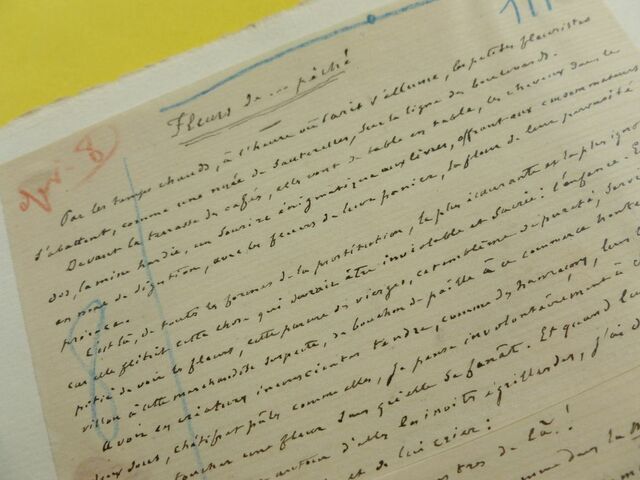 Fleurs de ... péché
Par les temps chauds, à l'heure où Paris s'allume, les petites fleuristes
s'abattent, comme une nuée de sauterelles, sur la ligne des boulevards.
Devant la terrasse des cafés, elles vont de table en table, les cheveux dans le
dos, la mine hardie, un sourire énigmatique aux lèvres, offrant aux consommateurs
en peine de digestion, avec les fleurs de leur panier, la fleur de leur puérilité
précoce.
C'est là, de toutes les formes de la prostitution, la plus écœurante et la plus
car elle flétrit cette chose qui devrait être inviolable et sacrée : l'enfance. Et
pitié de voir les fleurs, cette parure des vierges, cet emblème de pureté, servir
à cette marchandise suspecte, de bouchon de paille à ce commerce
À voir ces créatures inconscientes tendre, comme des hameçons, leurs
deux sous, chétifs et pâles comme elles, je pense involontairement à
toucher une fleur sans qu'elle se fanât. Et quand
autour d'elles les invités égrillardes, j'ai
et de lui crier :
de là !
dans la